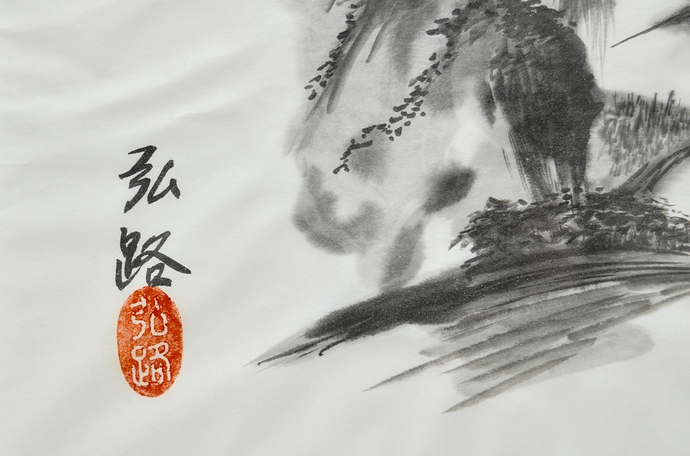 弘
路
弘
路